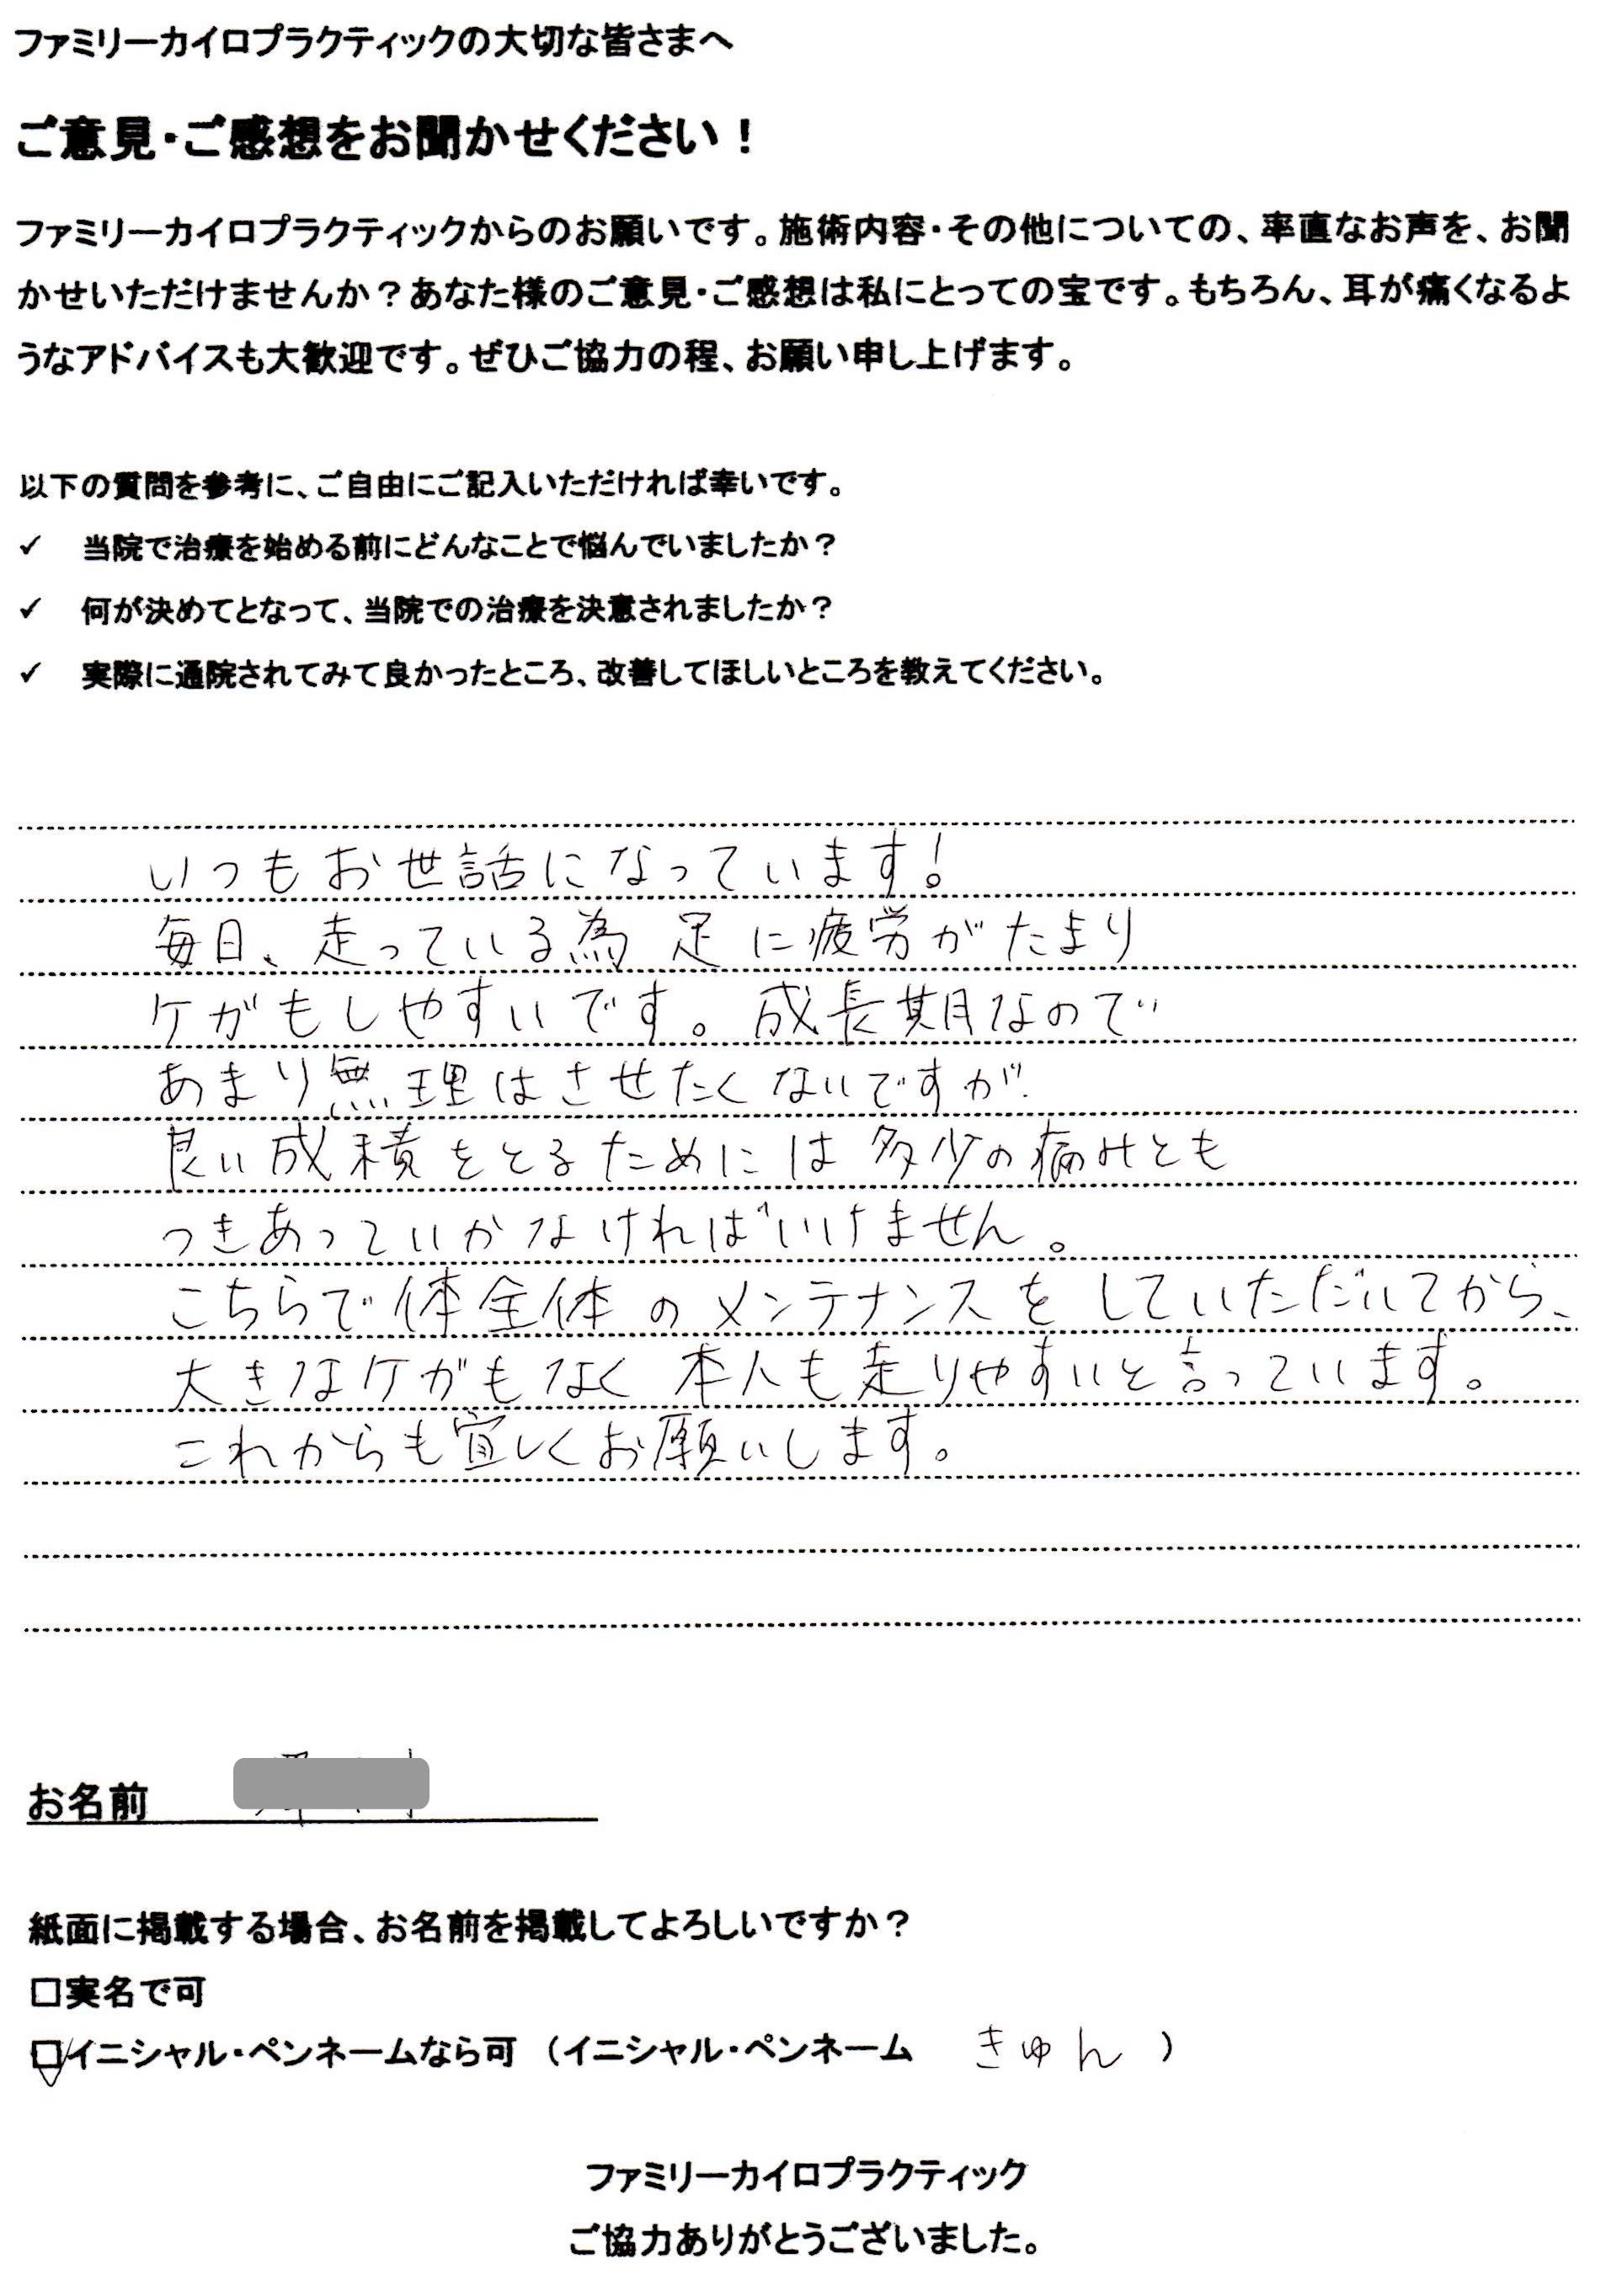 ファミリーカイロプラクティックの大切な皆さまへ
ご意見・ご感想をお聞かせください！
ファミリーカイロプラクティックからのお願いです。施術内容・その他についての、率直なお声を、お聞
かせいただけませんか？あなた様のご意見・ご感想は私にとっての宝です。もちろん、耳が痛くなるよ
うなアドバイスも大歓迎です。ぜひご協力の程、お願い申し上げます。
以下の質問を参考に、ご自由にご記入いただければ幸いです。
✓ 当院で治療を始める前にどんなことで悩んでいましたか？
✓ 何が決めてとなって、当院での治療を決意されましたか？
✓ 実際に通院されてみて良かったところ、改善してほしいところを教えてください。
いつもお世話になっています！
毎日、走っている為 足に疲労がたまり
ケガもしやすいです。成長期なので
あまり無理はさせたくないですが
良い成積をとるためには 多少の痛みとも
つきあっていかなければいけません。
こちらで体全体のメンテナンスをしていただいてから、
大きなケガもなく 本人も走りやすいと言っています。
これからも宜しくお願いします。
お名前
紙面に掲載する場合、お名前を掲載してよろしいですか？
□実名で可
☑イニシャル・ペンネームなら可 （イニシャル・ペンネーム きゅん ）
ファミリーカイロプラクティック
ご協力ありがとうございました。